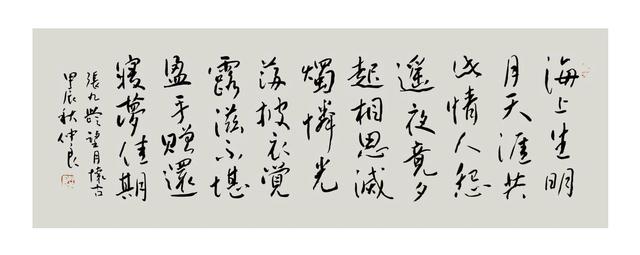 海上生明
月天涯共
此情人怨
遙夜竟夕
起相思滅
燭憐光
滿披衣覺
露滋不堪
盈手贈還
寢夢佳期
張九齡望月懷古
甲辰秋仲良